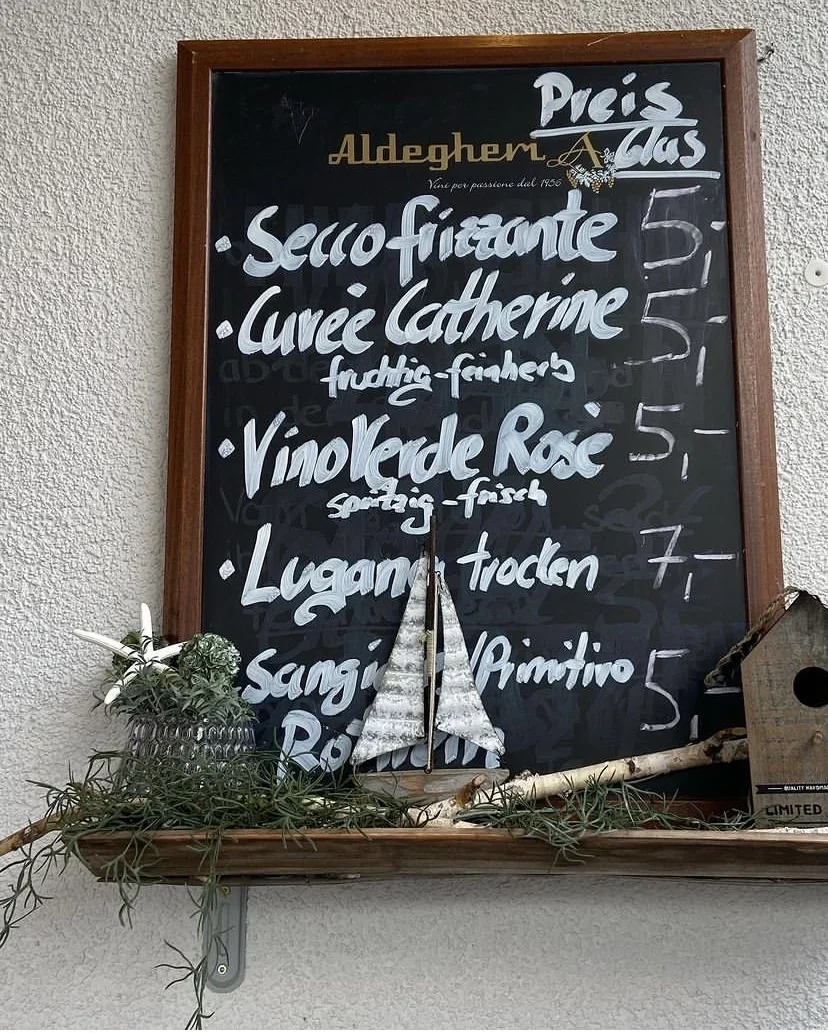 Preis
Aldegheri A Glas
Vini per passione dal 1956
Secco frizzante 5,-
Cuveè Catherine 5,-
fruchtig-feinherb
Vino Verde Rosè 5,-
spritzig-frisch
Lugana trocken 7,-
/Primitivo 5,-
QUALITY HANDMADE
LIMITED